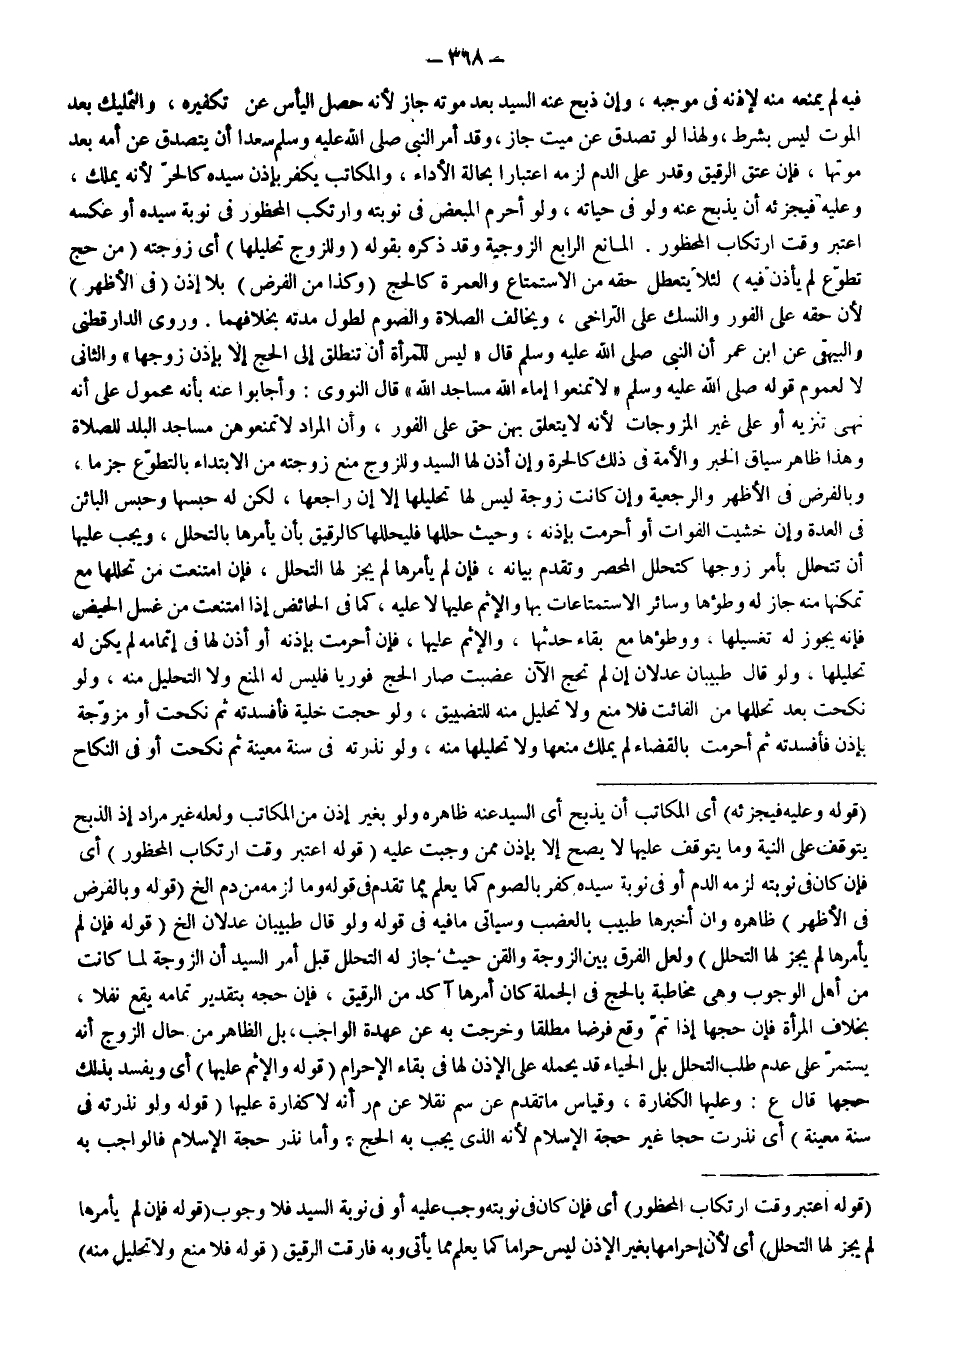 – ٣٦٨ –
فيه لم يمنعه منه لإذنه فى موجبه ، وإن ذبح عنه السيد بعد موته جاز لأنه حصل اليأس عن تكفيره ، والتمليك بعد
الموت ليس بشرط ، ولهذا لو تصدق عن ميت جاز ، وقد أمر النبى صلى الله عليه وسلم سعدا أن يتصدق عن أمه بعد
موتها ، فإن عتق الرقيق وقدر على الدم لزمه اعتبارا بحالة الأداء ، والمكاتب يكفر بإذن سيده كالحرّ لأنه يملك ،
وعليه فيجزئه أن يذبح عنه ولو فى حياته ، ولو أحرم المبعض فى نوبته وارتكب المحظور فى نوبة سيده أو عكسه
اعتبر وقت ارتكاب المحظور . المانع الرابع الزوجية وقد ذكره بقوله ( وللزوج تحليلها ) أى زوجته ( من حج
تطوّع لم يأذن فيه ) لئلا يتعطل حقه من الاستمتاع والعمرة كالحج ( وكذا من الفرض ) بلا إذن ( فى الأظهر )
لأن حقه على الفور والنسك على التراخى ، ويخالف الصلاة والصوم لطول مدته بخلافهما . وروى الدارقطنى
والبيهقى عن ابن عمر أن النبى صلى الله عليه وسلم قال « ليس للمرأة أن تنطلق إلى الحج إلا بإذن زوجها » والثانى
لا لعموم قوله صلى الله عليه وسلم « لا تمنعوا إماء الله مساجد الله » قال النووى : وأجابوا عنه بأنه محمول على أنه
نهى تنزيه أو على غير المزوجات لأنه لا يتعلق بهن حق على الفور ، وأن المراد لا تمنعوهن مساجد البلد للصلاة
وهذا ظاهر سياق الخبر والأمة فى ذلك كالحرة وإن أذن لها السيد وللزوج منع زوجته من الابتداء بالتطوّع جزما ،
وبالفرض فى الأظهر والرجعية وإن كانت زوجة ليس لها تحليلها إلا إن راجعها ، لكن له حبسها وحبس البائن
فى العدة وإن خشيت الفوات أو أحرمت بإذنه ، وحيث حللها فليحللها كالرقيق بأن يأمرها بالتحلل ، ويجب عليها
أن تتحلل بأمر زوجها كتحلل المحصر وتقدم بيانه ، فإن لم يأمرها لم يجز لها التحلل ، فإن امتنعت من تحللها مع
تمكنها منه جاز له وطؤها وسائر الاستمتاعات بها والإثم عليها لا عليه ، كما فى الحائض إذا امتنعت من غسل الحيض
فإنه يجوز له تغسيلها ، ووطؤها مع بقاء حدثها ، والإثم عليها ، فإن أحرمت بإذنه أو أذن لها فى إتمامه لم يكن له
تحليلها ، ولو قال طبيبان عدلان إن لم تحج الآن عضبت صار الحج فوريا فليس له المنع ولا التحليل منه ، ولو
نكحت بعد تحللها من الفائت فلا منع ولا تحليل منه للتضييق ، ولو حجت خلية فأفسدته ثم نكحت أو مزوّجة
بإذن فأفسدته ثم أحرمت بالقضاء لم يملك منعها ولا تحليلها منه ، ولو نذرته فى سنة معينة ثم نكحت أو فى النكاح
(قوله وعليه فيجزئه) أى المكاتب أن يذبح أى السيد عنه ظاهره ولو بغير إذن من المكاتب ولعله غير مراد إذ الذبح
يتوقف على النية وما يتوقف عليها لا يصح إلا بإذن ممن وجبت عليه ( قوله اعتبر وقت ارتكاب المحظور ) أى
فإن كان فى نوبته لزمه الدم أو فى نوبة سيده كفر بالصوم كما يعلم مما تقدم فى قوله وما لزمه من دم الخ (قوله وبالفرض
فى الأظهر ) ظاهره وان أخبرها طبيب بالعضب وسيأتى مافيه فى قوله ولو قال طبيبان عدلان الخ ( قوله فإن لم
يأمرها لم يجز لها التحلل ) ولعل الفرق بين الزوجة والقن حيث جاز له التحلل قبل أمر السيد أن الزوجة لما كانت
من أهل الوجوب وهى مخاطبة بالحج فى الجملة كان أمرها آكد من الرقيق ، فإن حجه بتقدير تمامه يقع نفلا ،
بخلاف المرأة فإن حجها إذا تمّ وقع فرضا مطلقا وخرجت به عن عهدة الواجب ، بل الظاهر من حال الزوج أنه
يستمرّ على عدم طلب التحلل بل الحياء قد يحمله على الإذن لها فى بقاء الإحرام ( قوله والإثم عليها ) أى ويفسد بذلك
حجها قال ع : وعليها الكفارة ، وقياس ماتقدم عن سم نقلا عن مر أنه لا كفارة عليها ( قوله ولو نذرته فى
سنة معينة ) أى نذرت حجا غير حجة الإسلام لأنه الذى يجب به الحج ؛ وأما نذر حجة الإسلام فالواجب به
(قوله اعتبر وقت ارتكاب المحظور) أى فإن كان فى نوبته وجب عليه أو فى نوبة السيد فلا وجوب (قوله فإن لم يأمرها
لم يجز لها التحلل) أى لأن إحرامها بغير الإذن ليس حراما كما يعلم مما يأتى وبه فارقت الرقيق ( قوله فلا منع ولا تحليل منه)